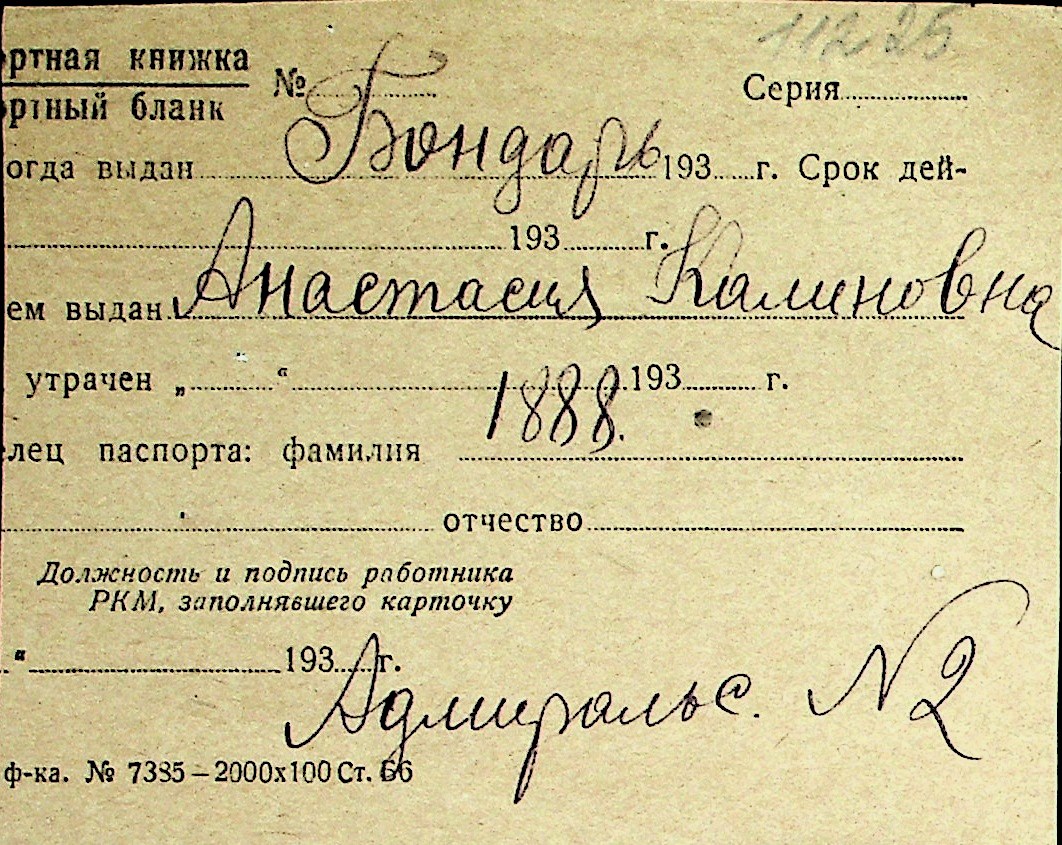 11225
ортная книжка № Серия
ортный бланк
Бондарь
огда выдан 193 г. Срок дей-
193 г.
Анастасия Калиновна
ем выдан
утрачен „ “ 193 г.
1888.
елец паспорта: фамилия
отчество
Должность и подпись работника
РКМ, заполнявшего карточку
“ 193 г.
Адмиральс. № 2
ф-ка. № 7385–2000х100 Ст. 66